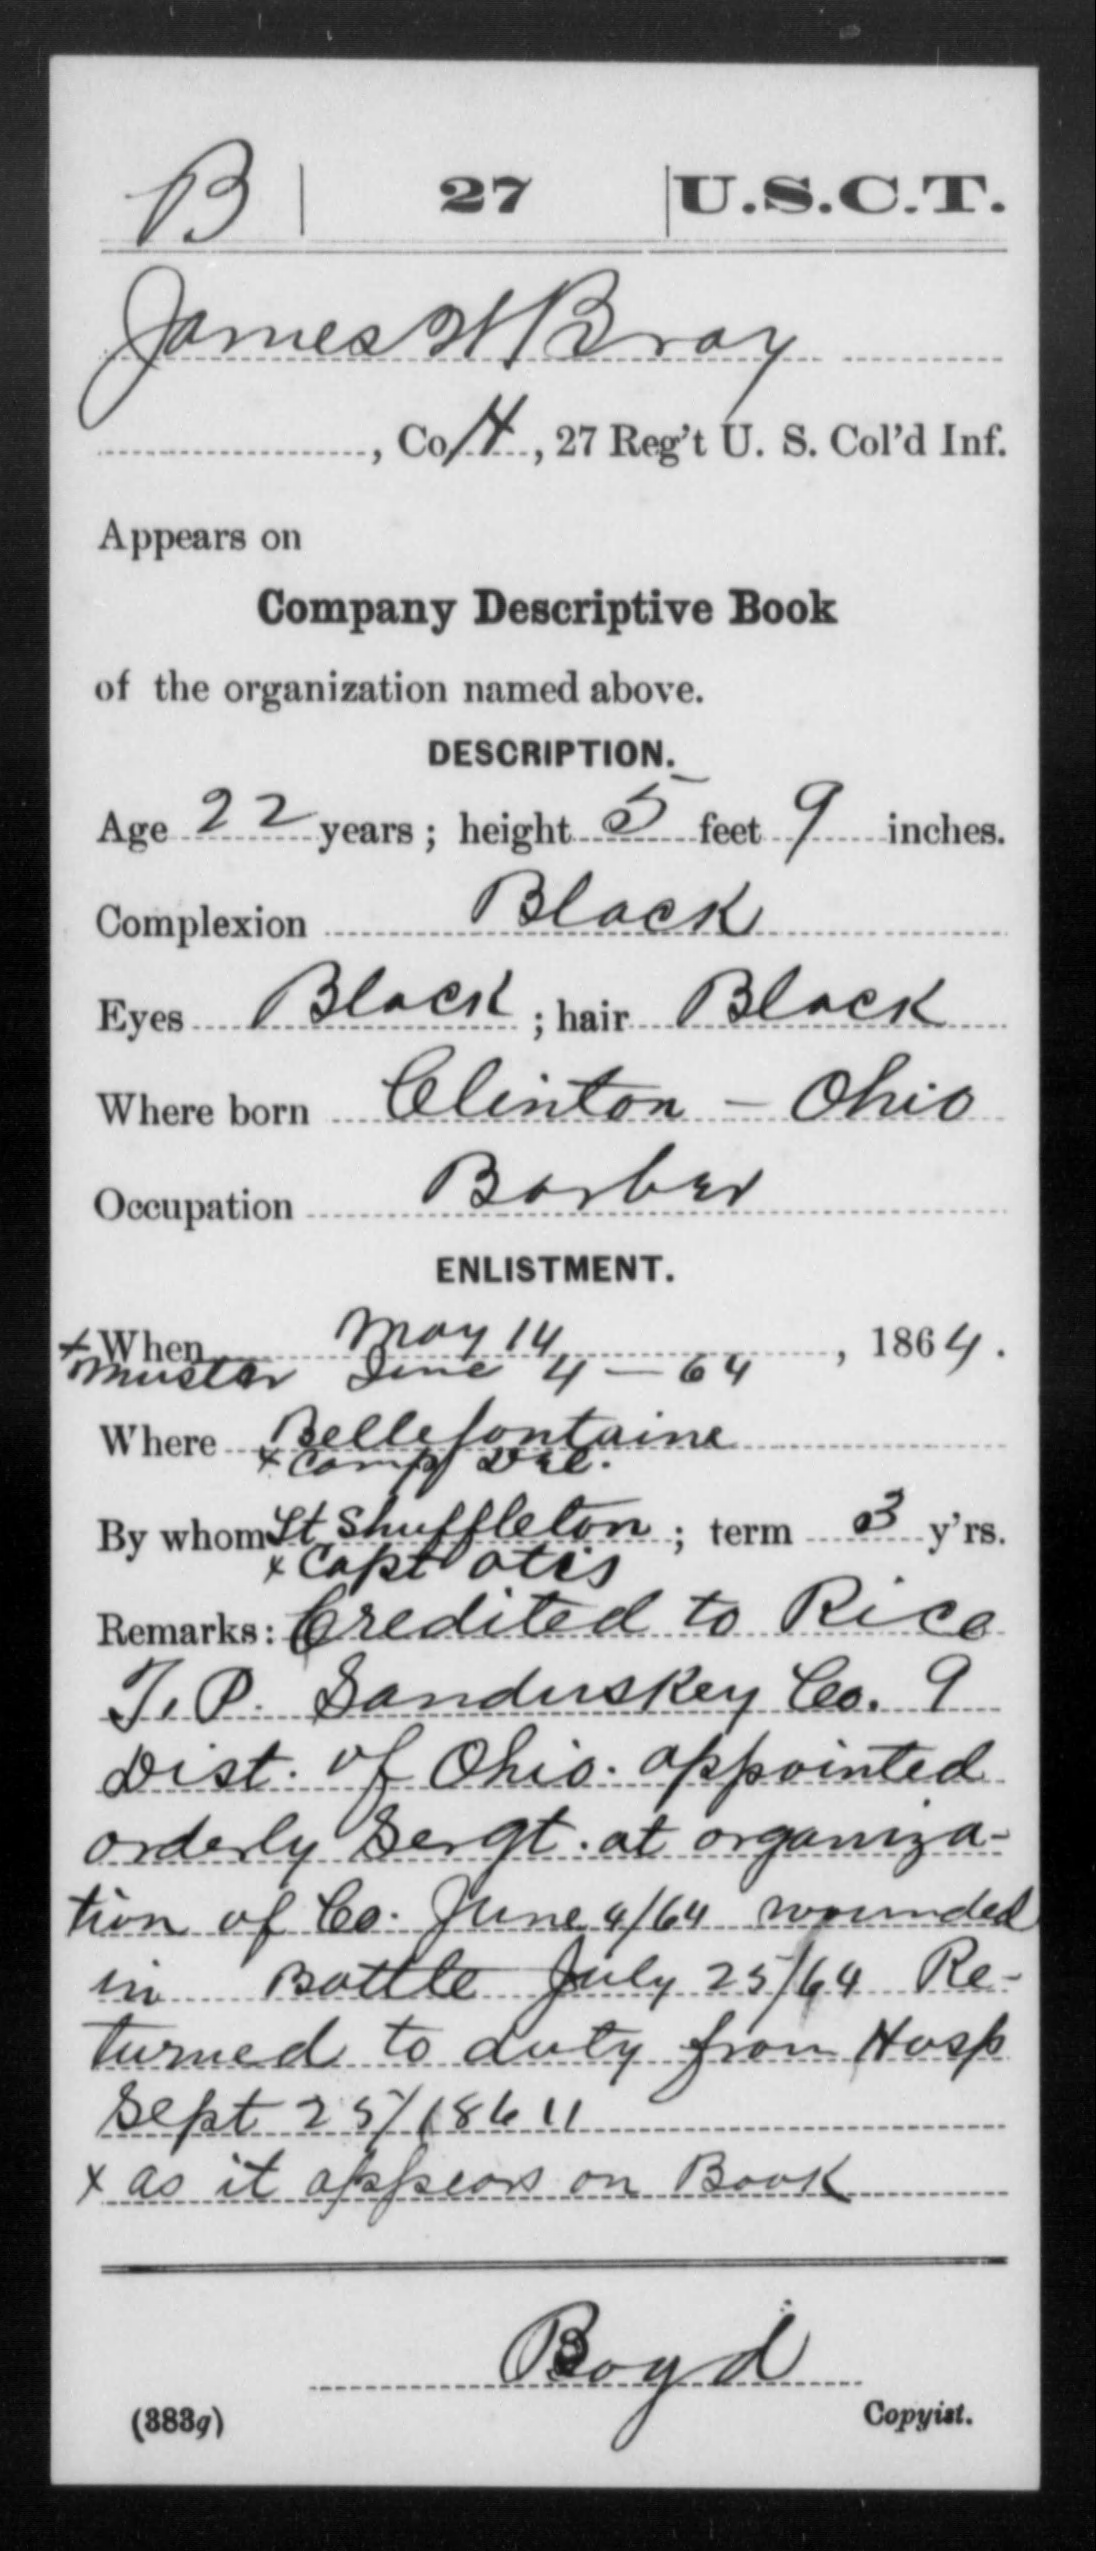 B | 27 | U.S.C.T.
James H Bray
, Co. H, 27 Reg't U. S. Col'd Inf.
Appears on
Company Descriptive Book
of the organization named above.
DESCRIPTION.
Age 22 years; height 5 feet 9 inches.
Complexion Black
Eyes Black; hair Black
Where born Clinton - Ohio
Occupation Barber
ENLISTMENT.
x When May 14, 1864.
Muster June 4 - 64
Where Bellefontaine
x Camp Del.
By whom Lt Shuffleton; term 3 y'rs.
x Capt Otis
Remarks: Credited to Rice
T.P. Sanduskey Co. 9
Dist. of Ohio. appointed
orderly Sergt. at organiza-
tion of Co. June 4/64 wounded
in Battle July 25/64 Re-
turned to duty from Hosp
Sept 25/1864
x as it appears on Book
Boyd
(383g) Copyist.